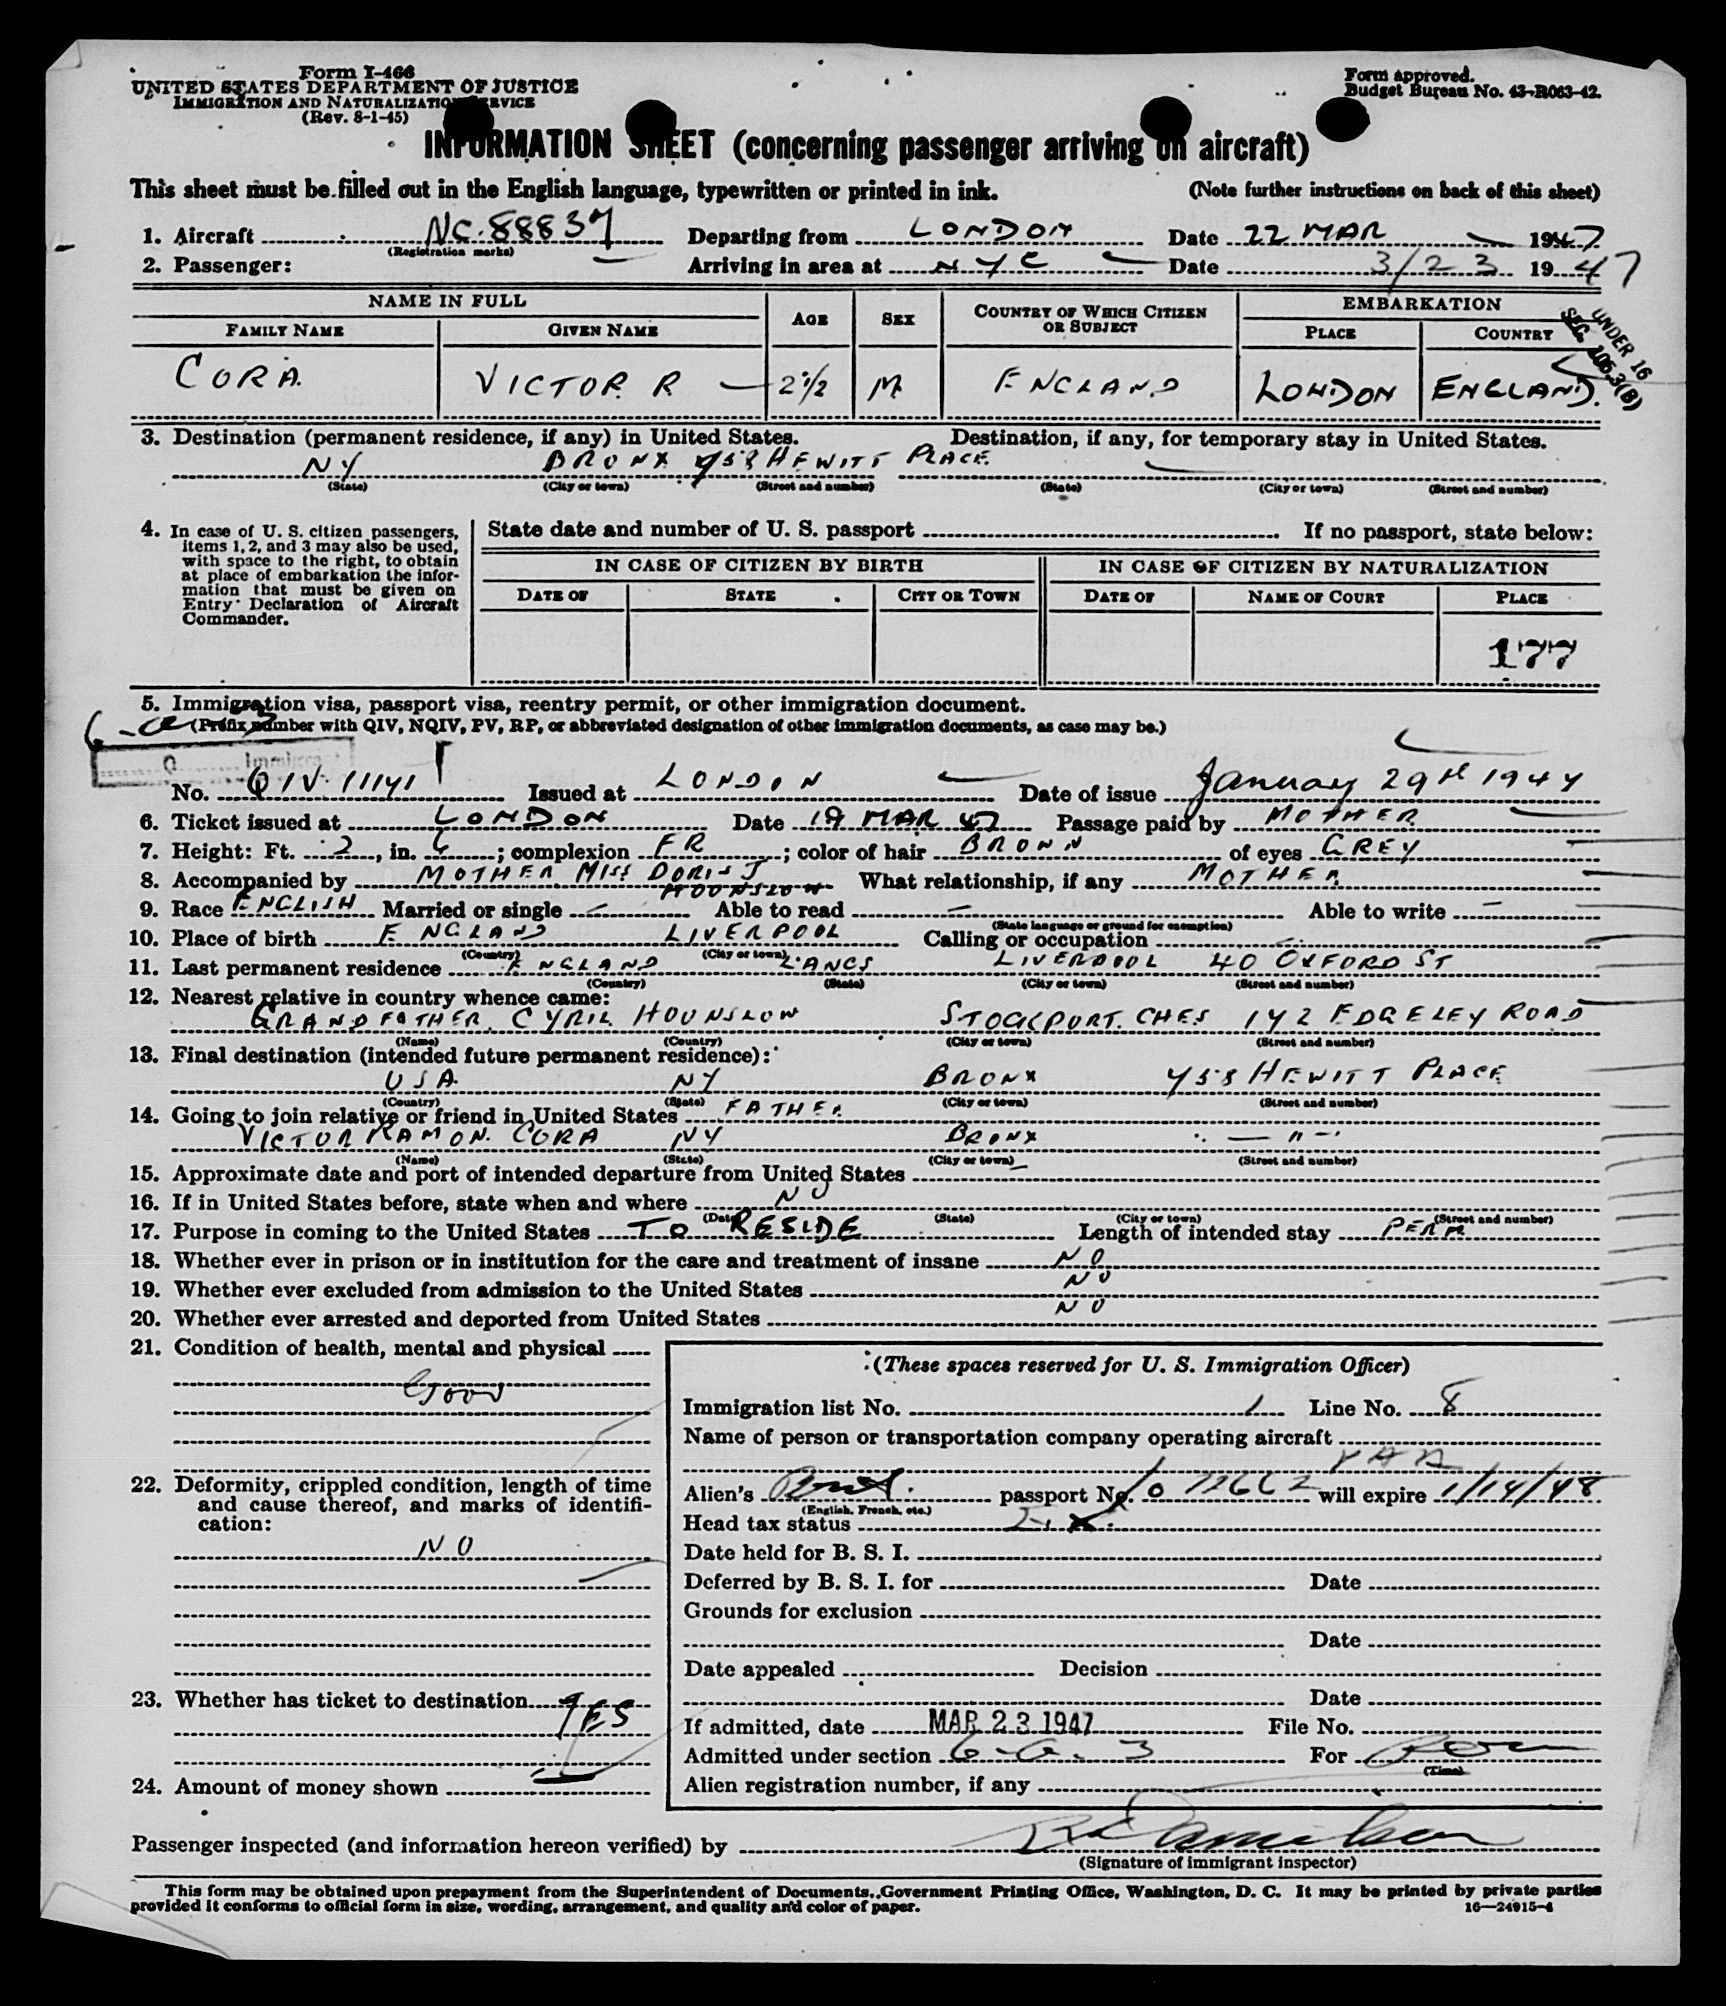 Form I-466
UNITED STATES DEPARTMENT OF JUSTICE
IMMIGRATION AND NATURALIZATION SERVICE
(Rev. 8-1-45)
Form approved.
Budget Bureau No. 43-R063-42.
INFORMATION SHEET (concerning passenger arriving on aircraft)
This sheet must be filled out in the English language, typewritten or printed in ink. (Note further instructions on back of this sheet)
1. Aircraft NC. 88837 Departing from LONDON Date 22 MAR 1947
(Registration marks)
2. Passenger: Arriving in area at NYC Date 3/23 1947
NAME IN FULL AGE SEX COUNTRY OF WHICH CITIZEN OR SUBJECT EMBARKATION
FAMILY NAME GIVEN NAME PLACE COUNTRY
UNDER 16
SEC. 106.3(B)
CORA VICTOR. R 2 1/2 M ENGLAND LONDON ENGLAND.
3. Destination (permanent residence, if any) in United States. Destination, if any, for temporary stay in United States.
NY BRONX 958 HEWITT PLACE
(State) (City or town) (Street and number) (State) (City or town) (Street and number)
4. In case of U. S. citizen passengers, items 1, 2, and 3 may also be used, with space to the right, to obtain at place of embarkation the information that must be given on Entry Declaration of Aircraft Commander.
State date and number of U. S. passport If no passport, state below:
IN CASE OF CITIZEN BY BIRTH IN CASE OF CITIZEN BY NATURALIZATION
DATE OF STATE CITY OR TOWN DATE OF NAME OF COURT PLACE
177
5. Immigration visa, passport visa, reentry permit, or other immigration document.
6-a-3 (Prefix number with QIV, NQIV, PV, RP, or abbreviated designation of other immigration documents, as case may be.)
Q Immigrant
No. QIV 11141 Issued at LONDON Date of issue January 29th 1947
6. Ticket issued at LONDON Date 19 MAR 47 Passage paid by MOTHER
7. Height: Ft. 2, in. 6; complexion FR; color of hair BROWN of eyes GREY
8. Accompanied by MOTHER MISS DORIS J HOUNSLOW What relationship, if any MOTHER
9. Race ENGLISH Married or single - Able to read - Able to write -
(State language or ground for exemption)
10. Place of birth ENGLAND LIVERPOOL Calling or occupation -
(Country) (City or town)
11. Last permanent residence ENGLAND LANCS LIVERPOOL 40 OXFORD ST
(Country) (State) (City or town) (Street and number)
12. Nearest relative in country whence came:
GRANDFATHER CYRIL HOUNSLOW STOCKPORT. CHES 142 EDGELEY ROAD
(Name) (Country) (City or town) (Street and number)
13. Final destination (intended future permanent residence):
USA. NY BRONX 958 HEWITT PLACE
(Country) (State) (City or town) (Street and number)
14. Going to join relative or friend in United States FATHER
VICTOR RAMON. CORA NY BRONX - " -
(Name) (State) (City or town) (Street and number)
15. Approximate date and port of intended departure from United States -
16. If in United States before, state when and where NO
(Date) (State) (City or town) (Street and number)
17. Purpose in coming to the United States TO RESIDE Length of intended stay PERM
18. Whether ever in prison or in institution for the care and treatment of insane NO
19. Whether ever excluded from admission to the United States NO
20. Whether ever arrested and deported from United States NO
21. Condition of health, mental and physical
Good
22. Deformity, crippled condition, length of time and cause thereof, and marks of identification:
NO
23. Whether has ticket to destination YES
24. Amount of money shown
(These spaces reserved for U. S. Immigration Officer)
Immigration list No. 1 Line No. 8
Name of person or transportation company operating aircraft
PAA
Alien's passport No. will expire 1/14/48
(English, French, etc.)
Head tax status Ex.
Date held for B. S. I.
Deferred by B. S. I. for Date
Grounds for exclusion
Date
Date appealed Decision
Date
If admitted, date MAR 23 1947 File No.
Admitted under section 6-a-3 For
(Time)
Alien registration number, if any
Passenger inspected (and information hereon verified) by
(Signature of immigrant inspector)
This form may be obtained upon prepayment from the Superintendent of Documents, Government Printing Office, Washington, D. C. It may be printed by private parties
provided it conforms to official form in size, wording, arrangement, and quality and color of paper. 16—24915-4